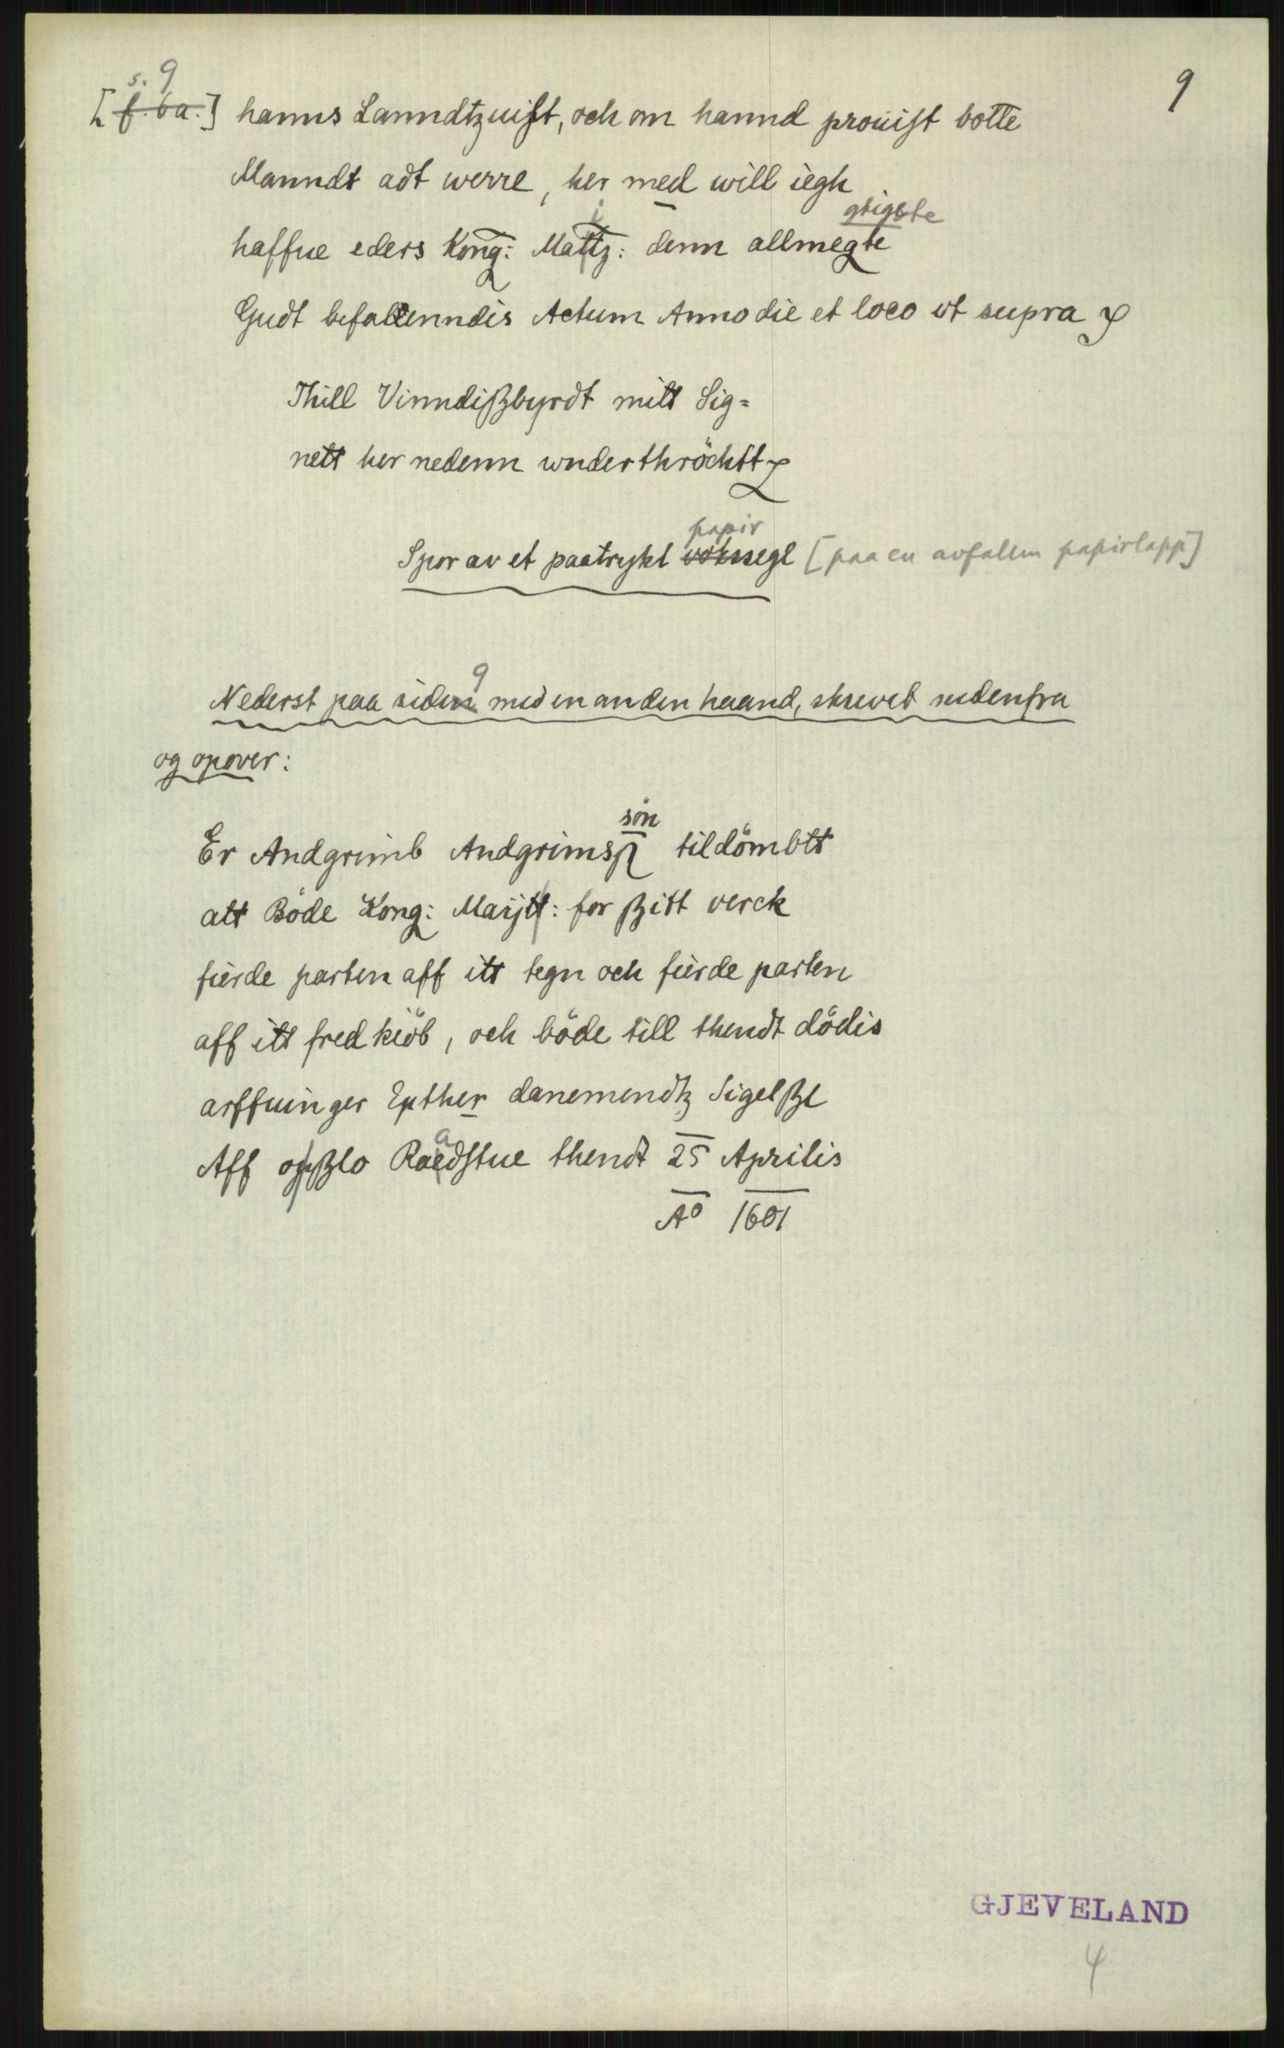 9
s. 9
[f. 6a.] hanns Lanndtzuist, och om hannd prouist botte
Manndt adt werre, her med will iegh
gtigste
haffue eders Kong: Mattz: denn allmegte
Gudt befalenndis Actum Anno die et loco vt supra
Thill Vinndißbyrdt mitt Sig=
nett her nedenn wnderthröchtt
papir
Spor av et paatrykt vokssegl [paa en avfallen papirlapp]
9
Nederst paa siden med en anden haand, skrevet nedenfra
og opover:
søn
Er Andgrimb Andgrimsß tildömbtt
att Böde Kong: Maijtt: for ßitt verck
fierde parten aff itt tegn och fierde parten
aff itt fredkiöb, och böde till thendt dödis
arffuinger Epther danemendtz Sigelße
a
Aff opßlo Raedstue thendt 25 Aprilis
A⁰ 1601
GJEVELAND
4